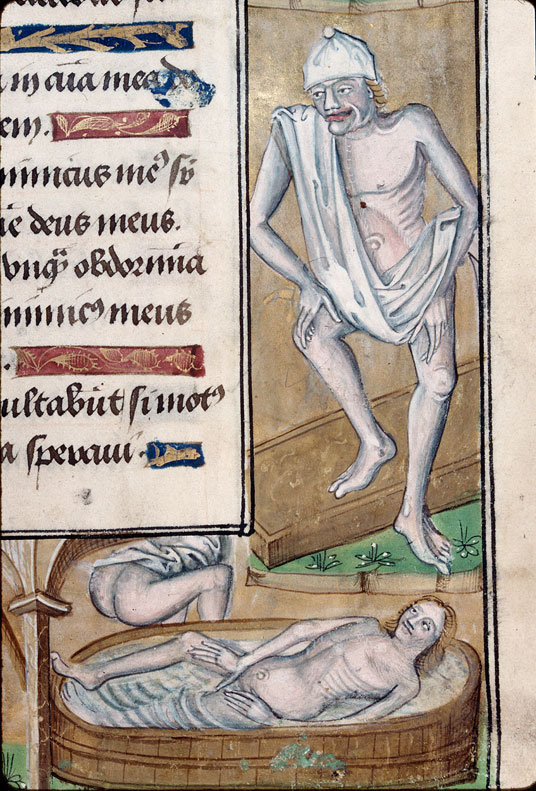 in aīa mea do
em.
inimicus meꝰ sū
ie deus meus.
vnq̄ʒ obdormia
inimicꝰ meus
ultabūt si motꝰ
a speraui.